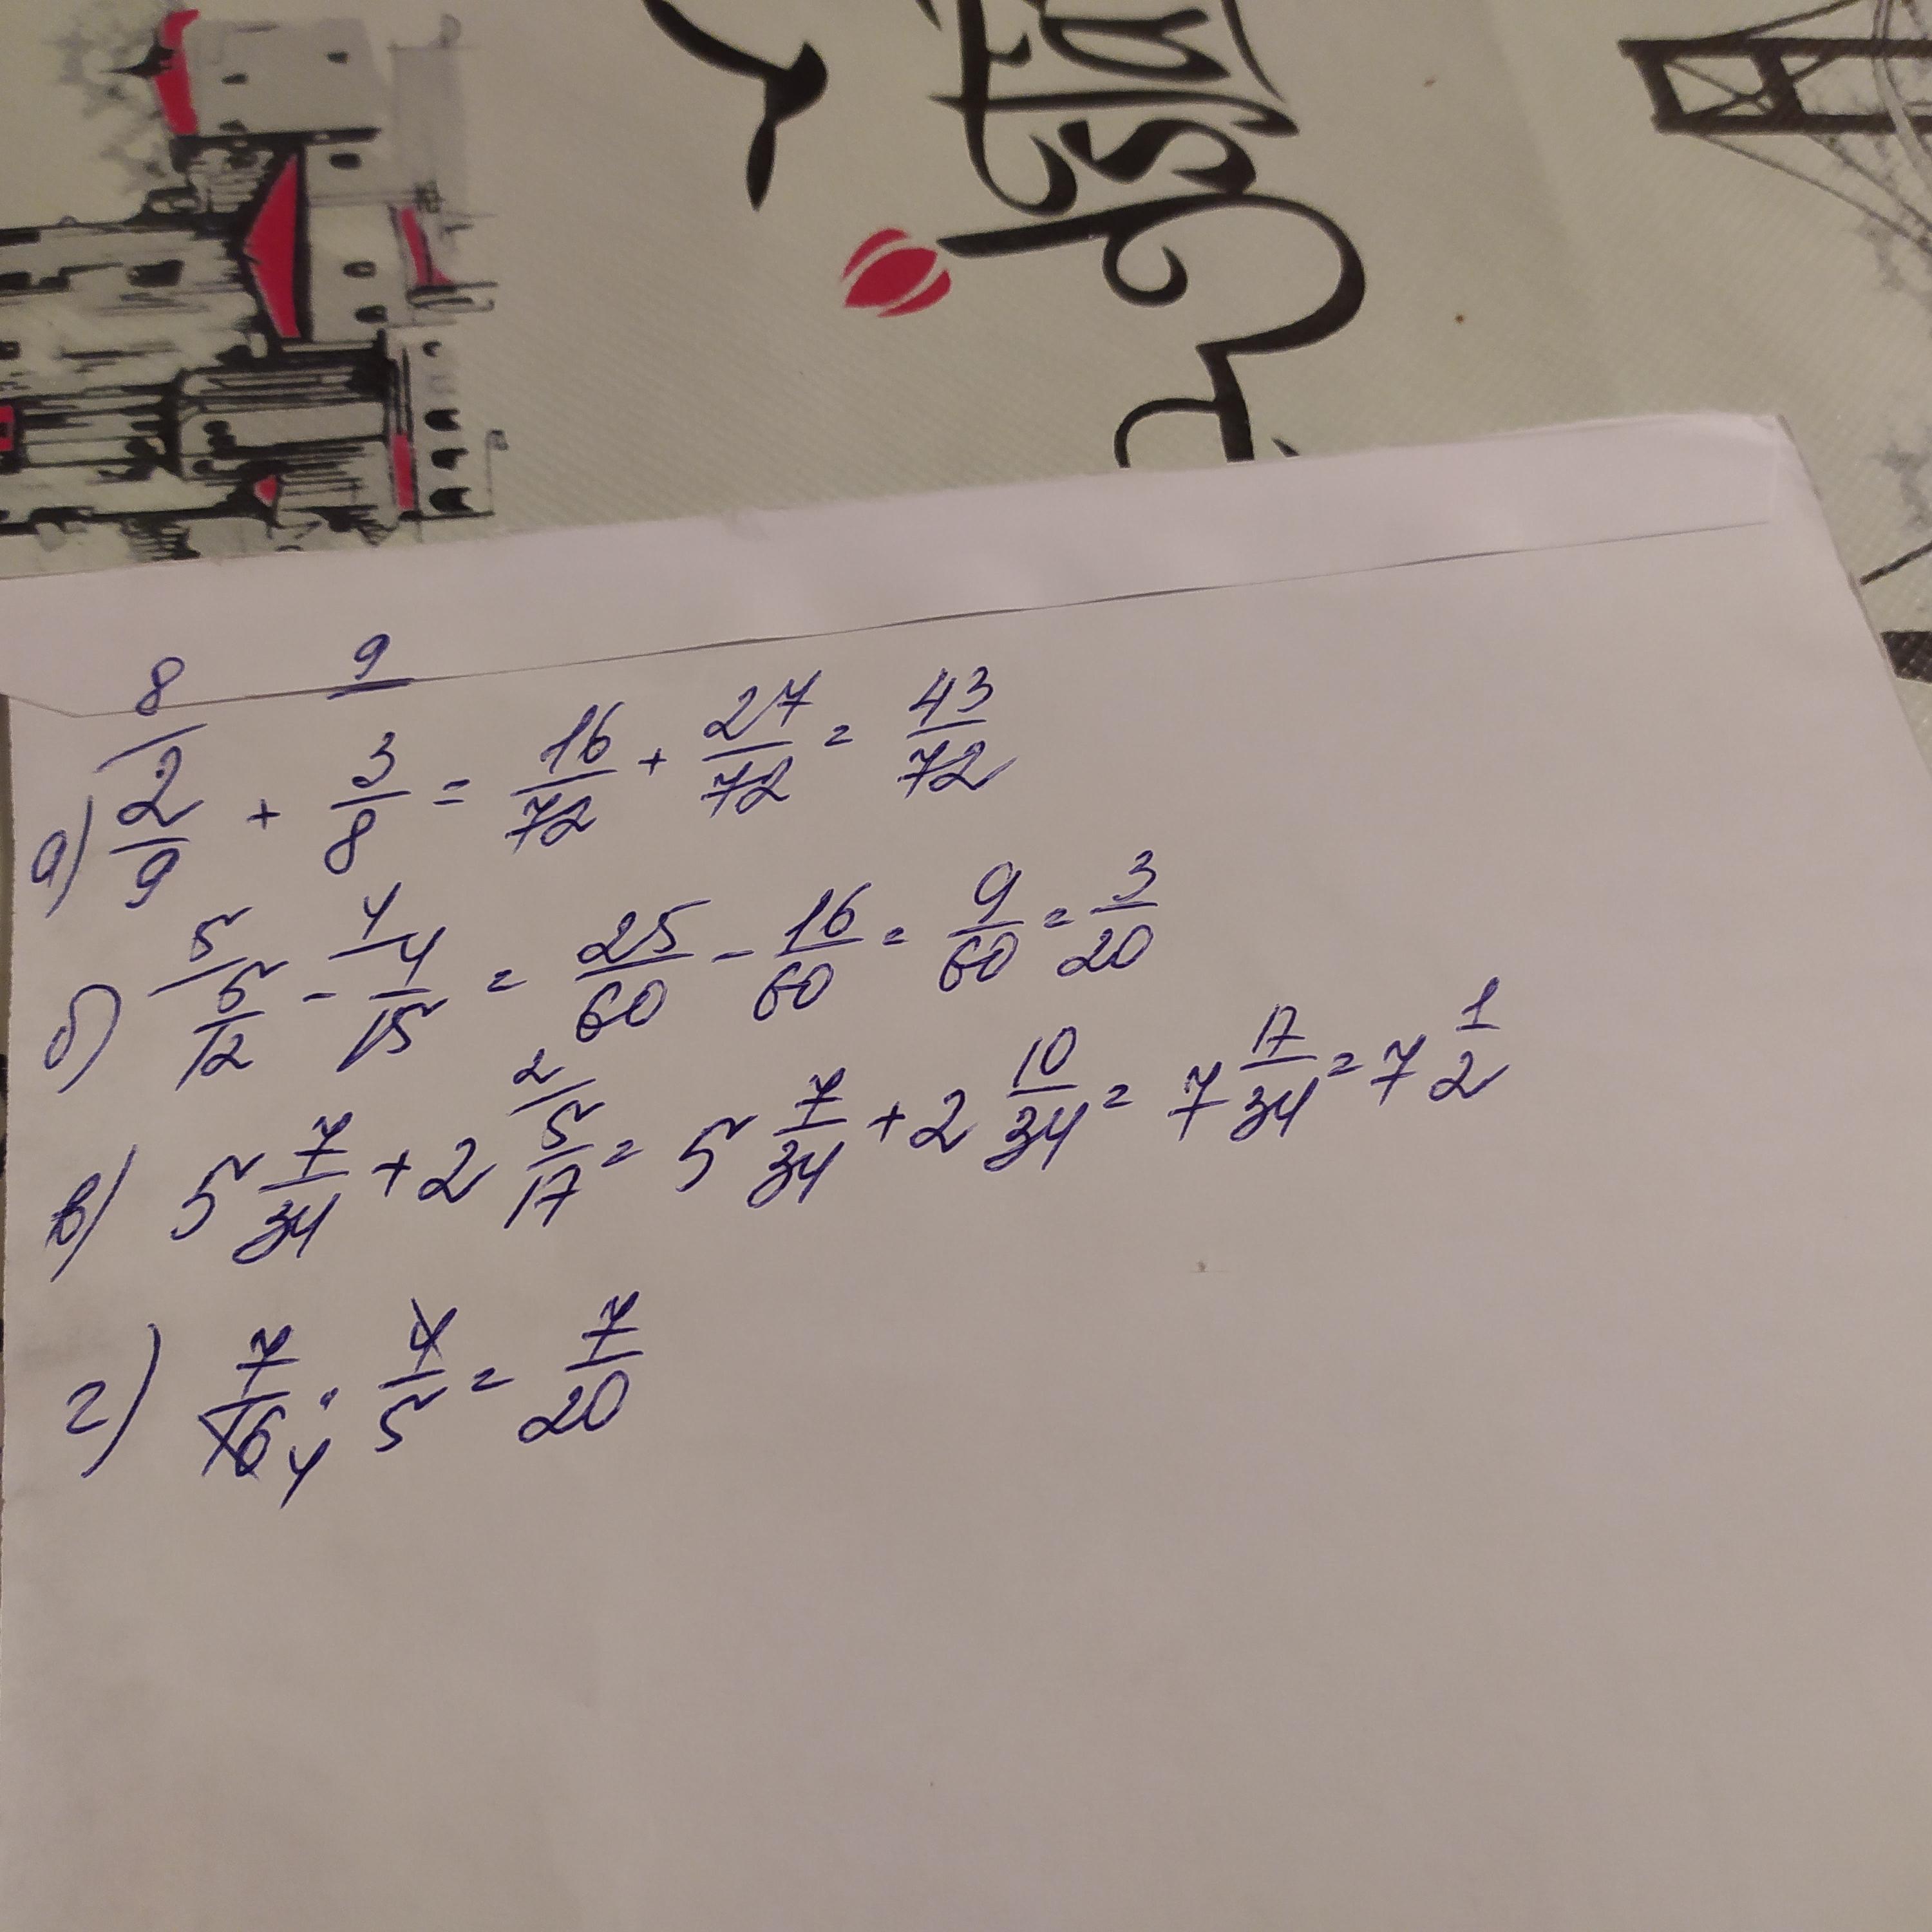 а) 8/ 2/9 + 9/ 3/8 = 16/72 + 27/72 = 43/72
б) 5/ 5/12 - 4/ 4/15 = 25/60 - 16/60 = 9/60 = 3/20
в) 5 7/34 + 2 2/ 5/17 = 5 7/34 + 2 10/34 = 7 17/34 = 7 1/2
г) 7/16 4 · 4/5 = 7/20